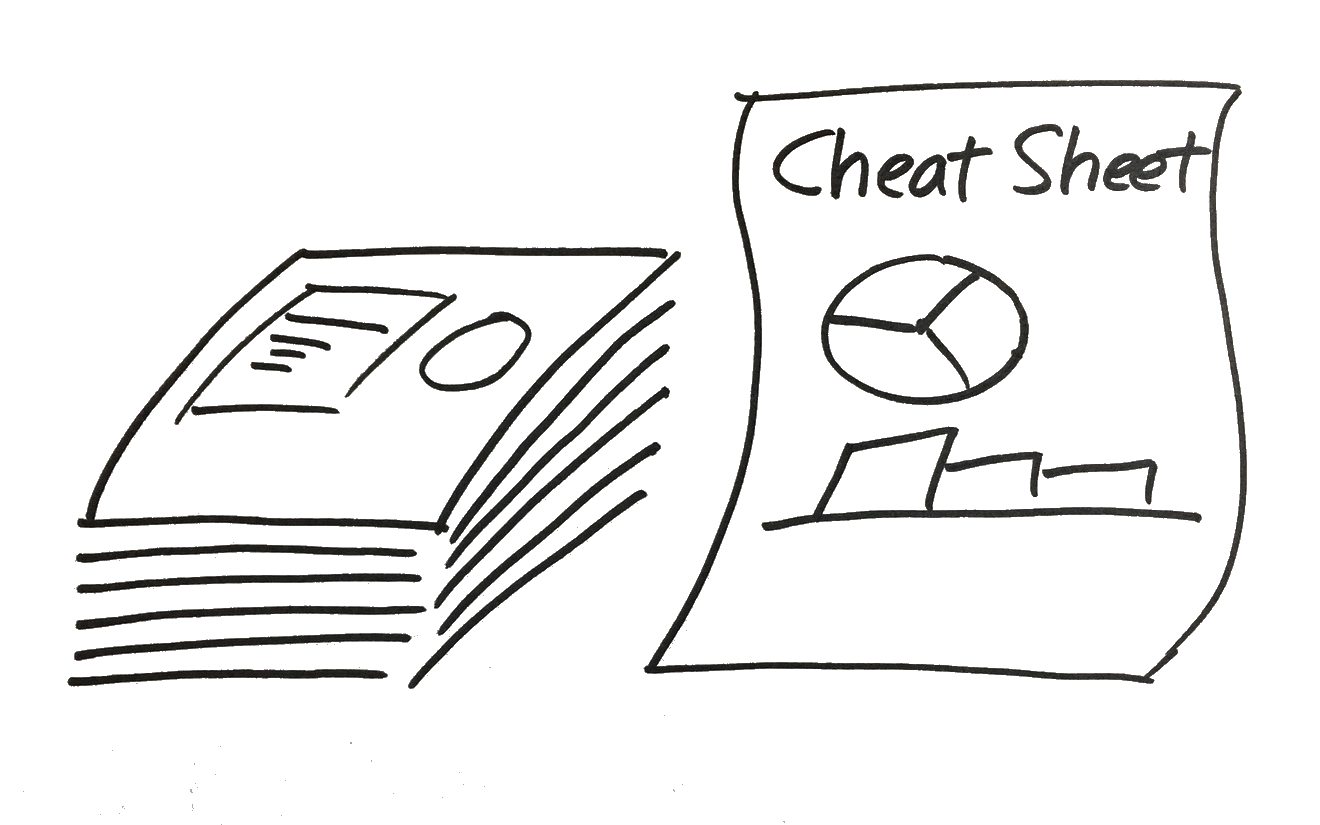 Cheat Sheet